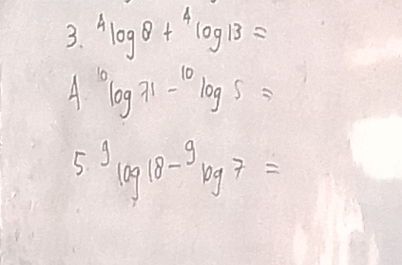 3. ⁴log 8 + ⁴log 13 =
4. ¹⁰log 71 - ¹⁰log 5 =
5. ⁹log 18 - ⁹log 7 =